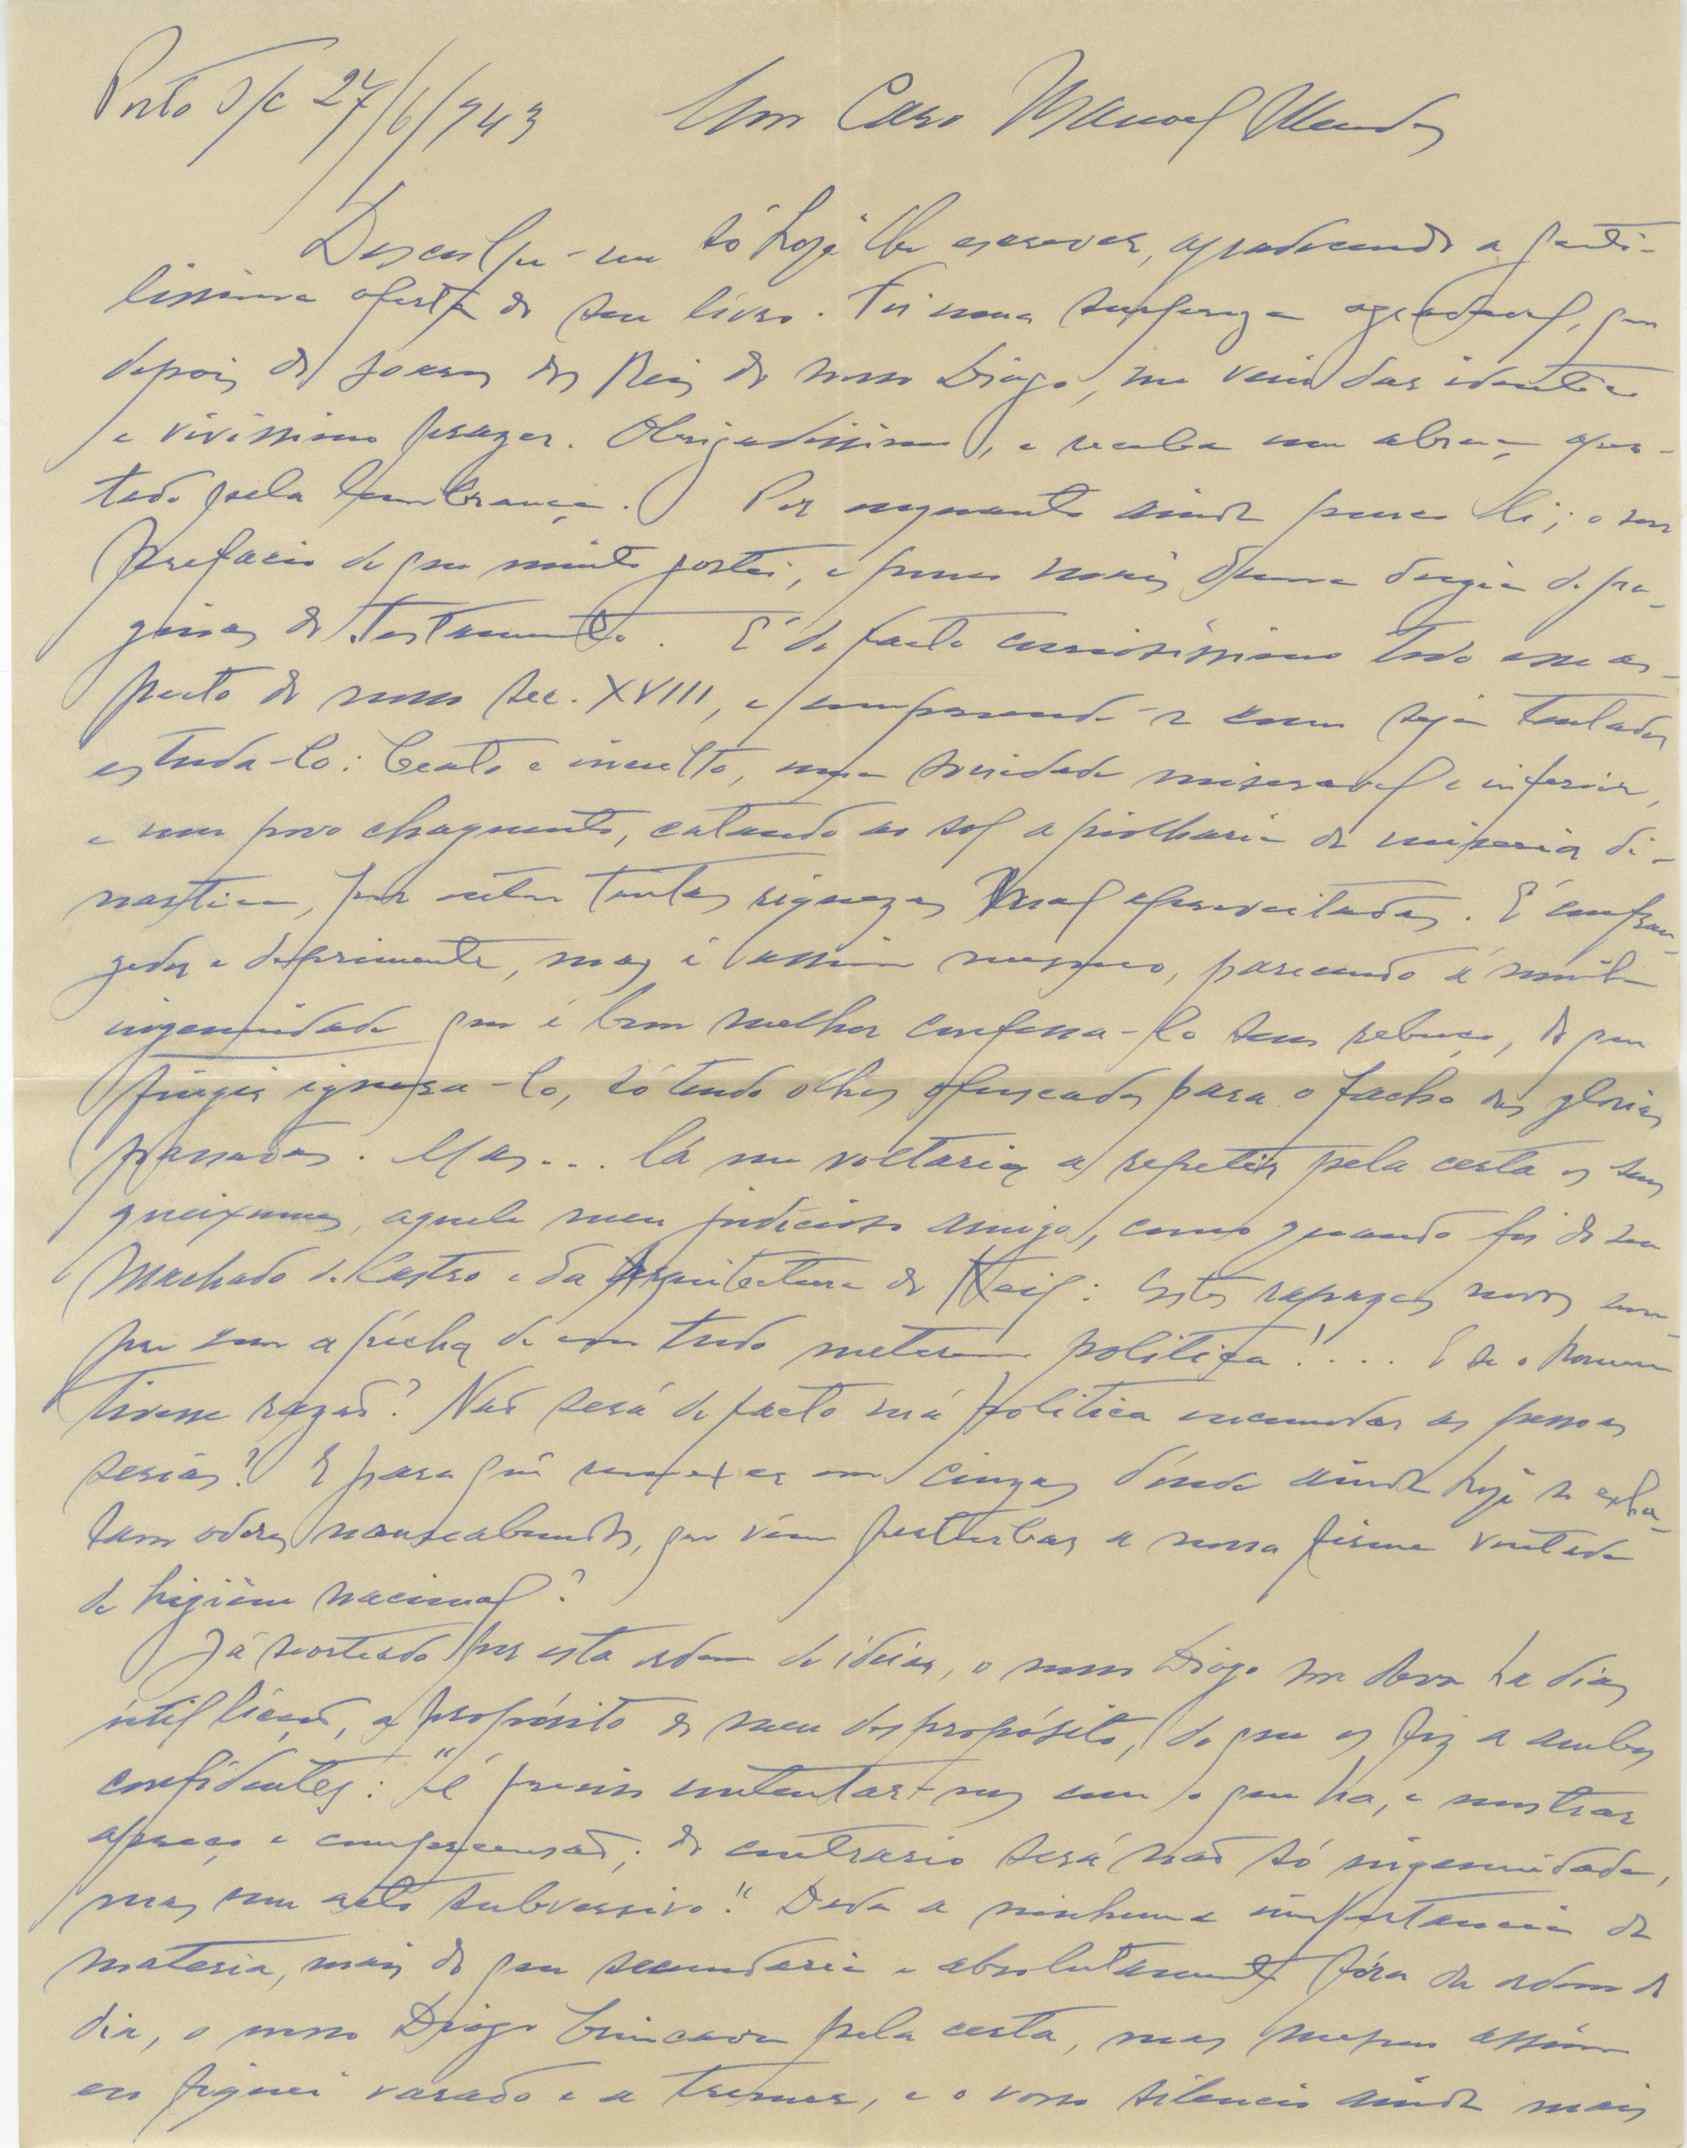 Porto S/c 27/6/943 Meu Caro Manoel Mendes
Desculpe-me só hoje lhe escrever, agradecendo a genti-
lissima oferta do seu livro. Foi uma surpreza agradavel, que
depois do Joaney dos Reis do nosso Diogo, me veiu dar identico
e vivissimo prazer. Obrigadissimo, e receba um abraço aper-
tado pela lembrança. Por enquanto ainda pouco li; o seu
prefacio de que muito gostei, e pouco mais duma duzia de pa-
ginas do Testamento. É de facto curiosissimo todo esse as-
pecto do nosso sec. XVIII, e compreende-se como seja tentador
estuda-lo: beato e inculto, uma sociedade miseravel e inferior,
e um povo chaguento, catando ao sol a piolharia da miseria di-
nastica, por entre tantas riquezas mal aproveitadas. É confran-
gedor e deprimente, mas é assim mesmo, parecendo á minha
ingenuidade que é bem melhor confessa-lo sem rebuço, do que
fingir ignora-lo, só tendo olhos ofuscados para o facho das glorias
passadas. Mas... lá me voltaria a repetir pela certa os seus
queixumes, aquele meu judicioso amigo, como quando foi do seu
Machado de Castro e da Arquitectura do Keil: Estes rapazes novos sem-
pre com a fúcha de em tudo meterem politica!.... E se o homem
tivesse razão? Não será de facto má politica incomodar as pessoas
serias? E para quê remexer em cinzas donde ainda hoje se exha-
lam odores nauseabundos, que vêm perturbar a nossa firme vontade
de higiêne nacional?
Já norteado por esta ordem de ideias, o nosso Diogo me dava ha dias
útil lição, a propósito do meu despropósito, do que os fiz a ambos
confidentes: "é preciso contentar-nos com o que ha, e mostrar
apreço e compreensão; do contrario será não só ingenuidade,
mas um acto subversivo." Dada a nenhuma importancia da
materia, mais do que secundaria e absolutamente fóra da ordem do
dia, o nosso Diogo brincava pela certa, mas mesmo assim
eu fiquei varado e a tremer, e o vosso silencio ainda mais